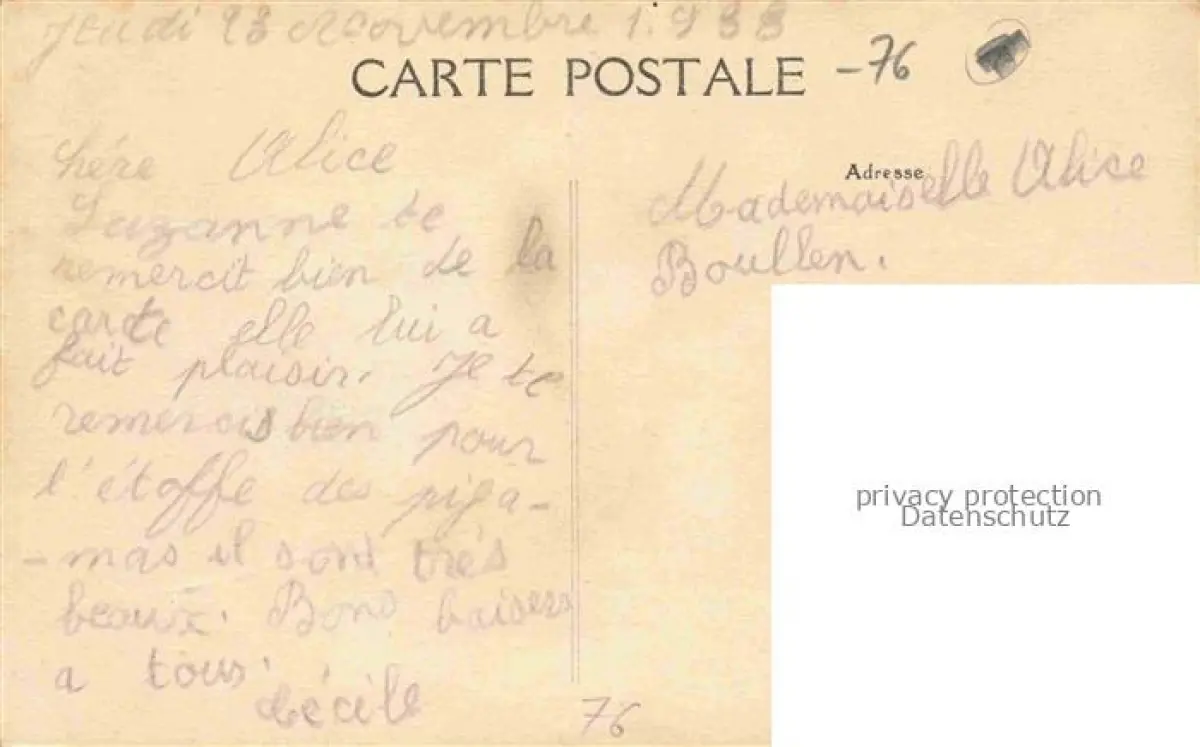 Jeudi 23 Novembre 1.933
CARTE POSTALE -76
chére Alice
Suzanne te
remercit bien de la
carte elle lui a
fait plaisir. Je te
remercis bien pour
l'étoffe des piga-
-mas il sont trés
beaux. Bons baisers
a tous.
Cécile
76
Adresse
Mademoiselle Alice
Boullen.
privacy protection
Datenschutz